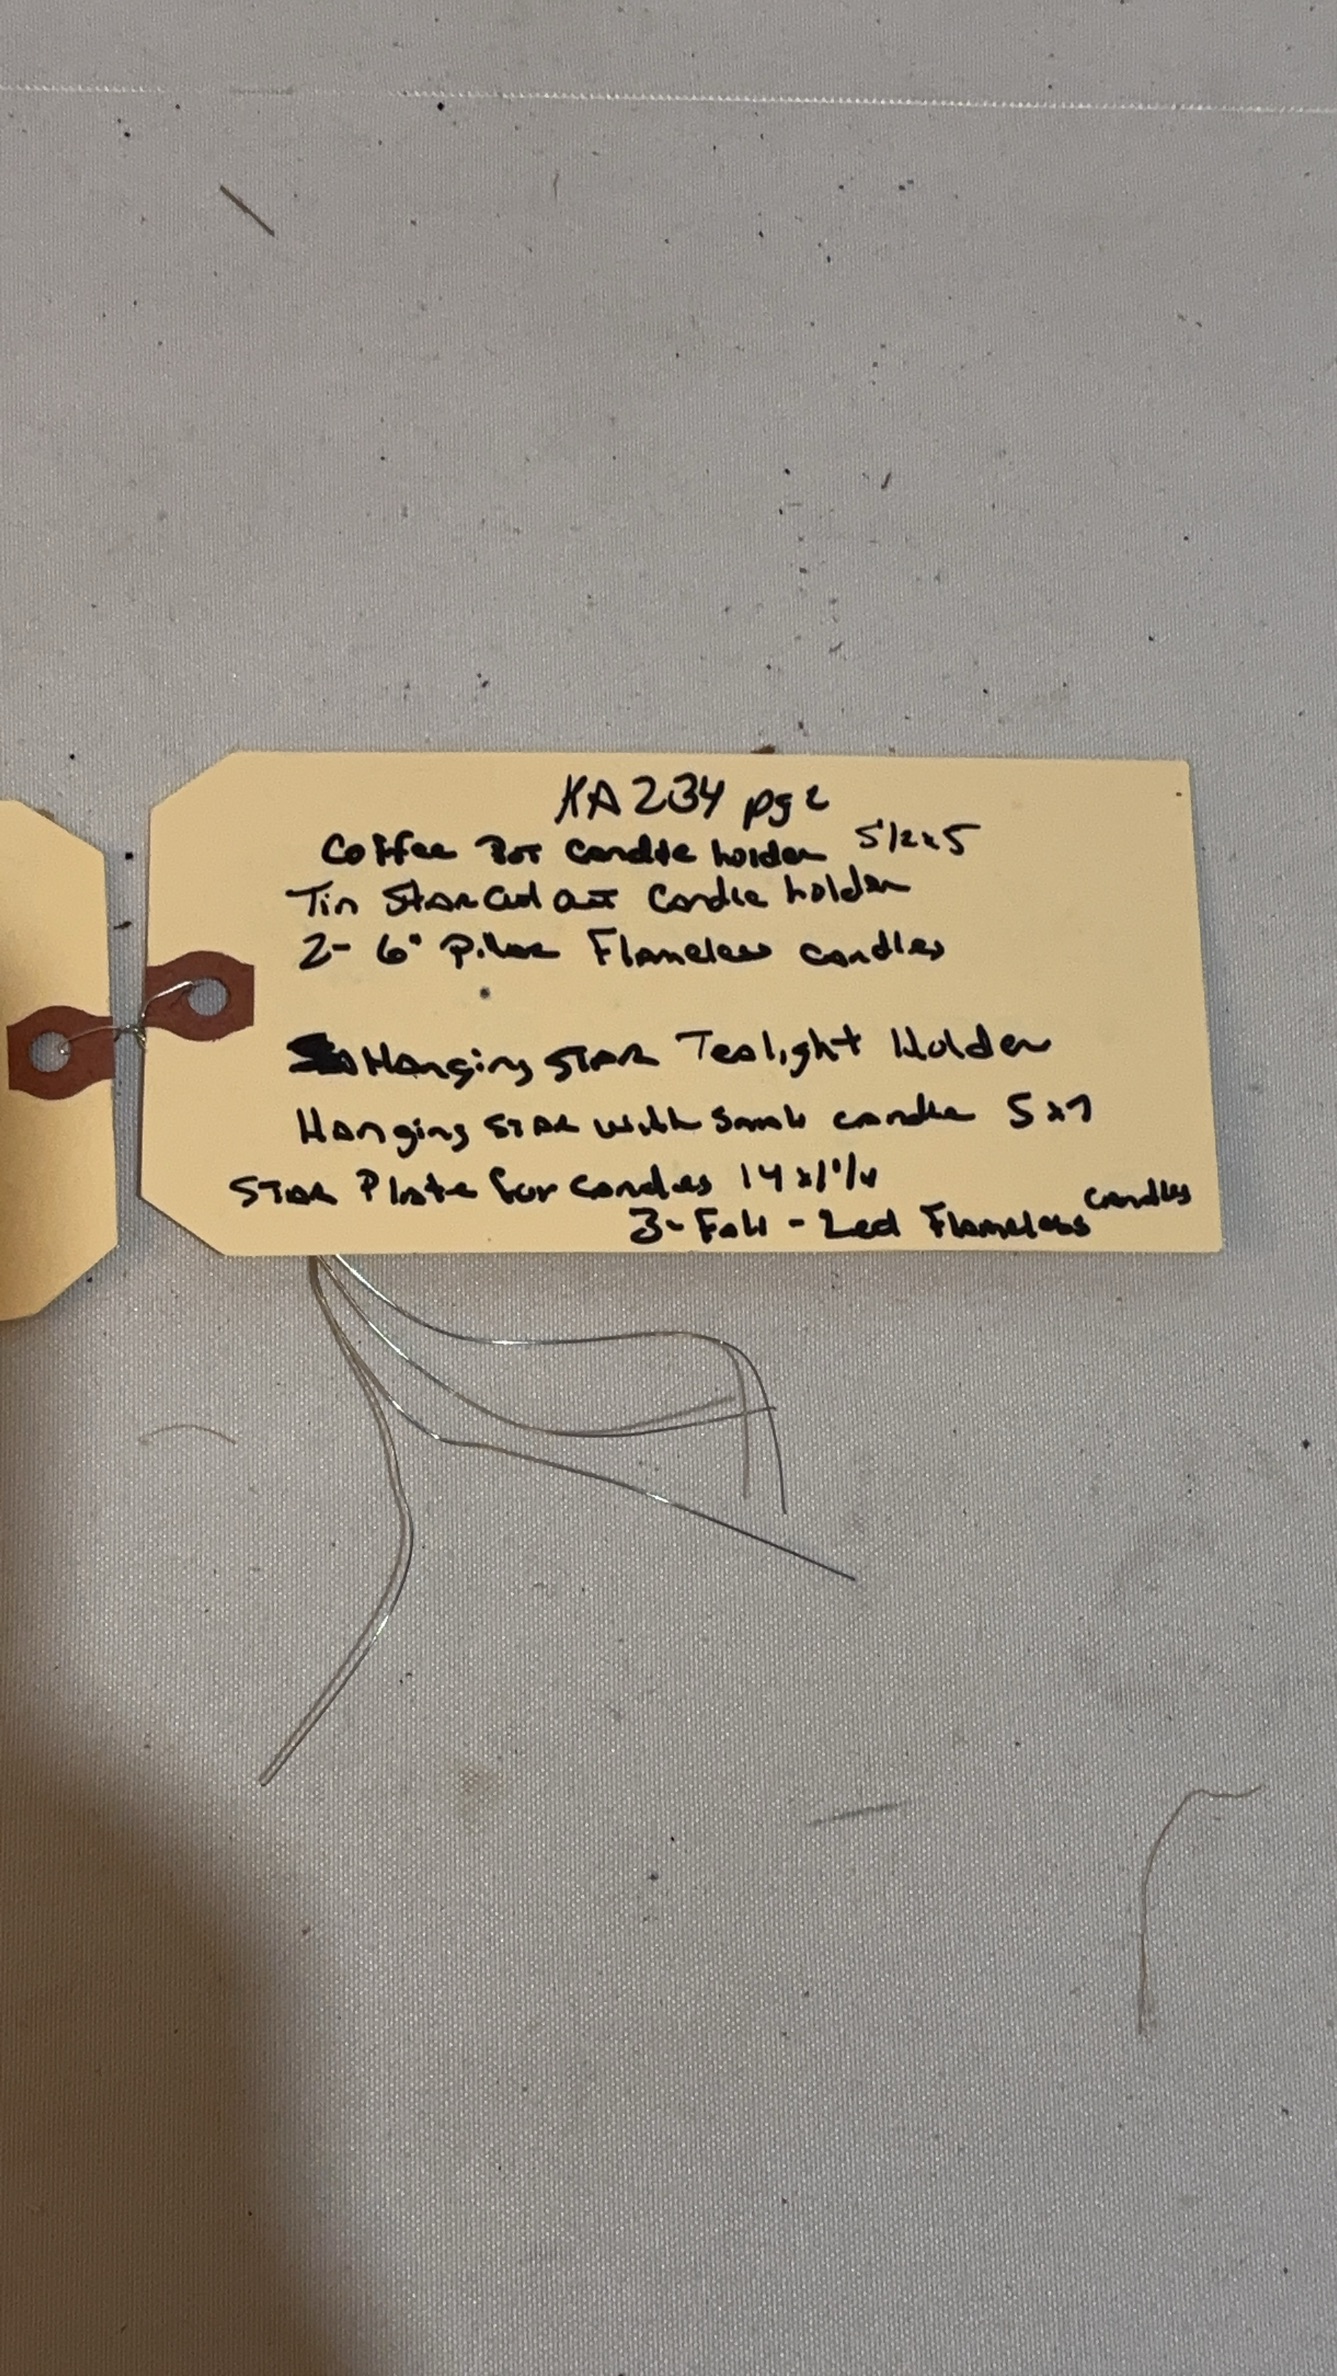 KA234 pg 2
Coffee Pot Candle holder 5 1/2 x 5
Tin Star Cut out Candle holder
2- 6" Pillar Flameless candles
Hanging STAR Tealight Holder
Hanging STAR with Small candle 5x7
STAR Plate for Candles 14 x
3- - Led Flameless candles